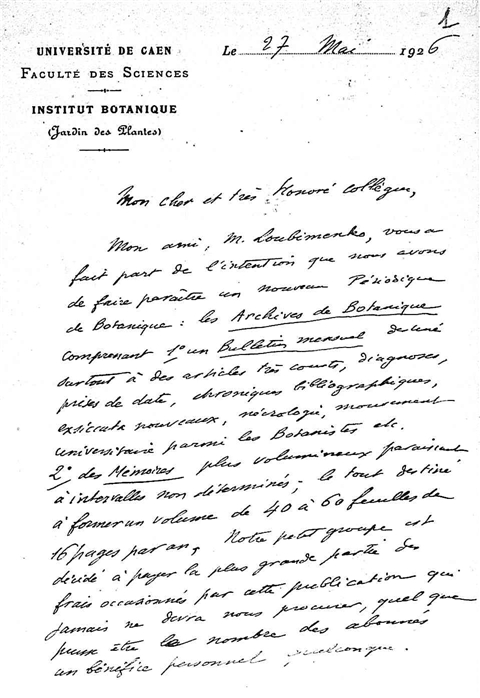 1
UNIVERSITÉ DE CAEN
FACULTÉ DES SCIENCES
INSTITUT BOTANIQUE
(Jardin des Plantes)
Le 27 Mai 1926
Mon cher et très honoré collègue,
Mon ami, M. Loubimenko, vous a
fait part de l'intention que nous avons
de faire paraître un nouveau Périodique
de Botanique : les Archives de Botanique
comprenant 1º un Bulletin mensuel destiné
surtout à des articles très courts, diagnoses,
prises de date, chroniques bibliographiques,
exsiccata nouveaux, nécrologie, mouvement
universitaire parmi les Botanistes etc.
2º des Mémoires plus volumineux paraissant
à intervalles non déterminés ; le tout destiné
à former un volume de 40 à 60 feuilles de
16 pages par an. Notre petit groupe est
décidé à payer la plus grande partie des
frais occasionnés par cette publication qui
jamais ne devra nous procurer, quel que
puisse être le nombre des abonnés
un bénéfice personnel quelconque.